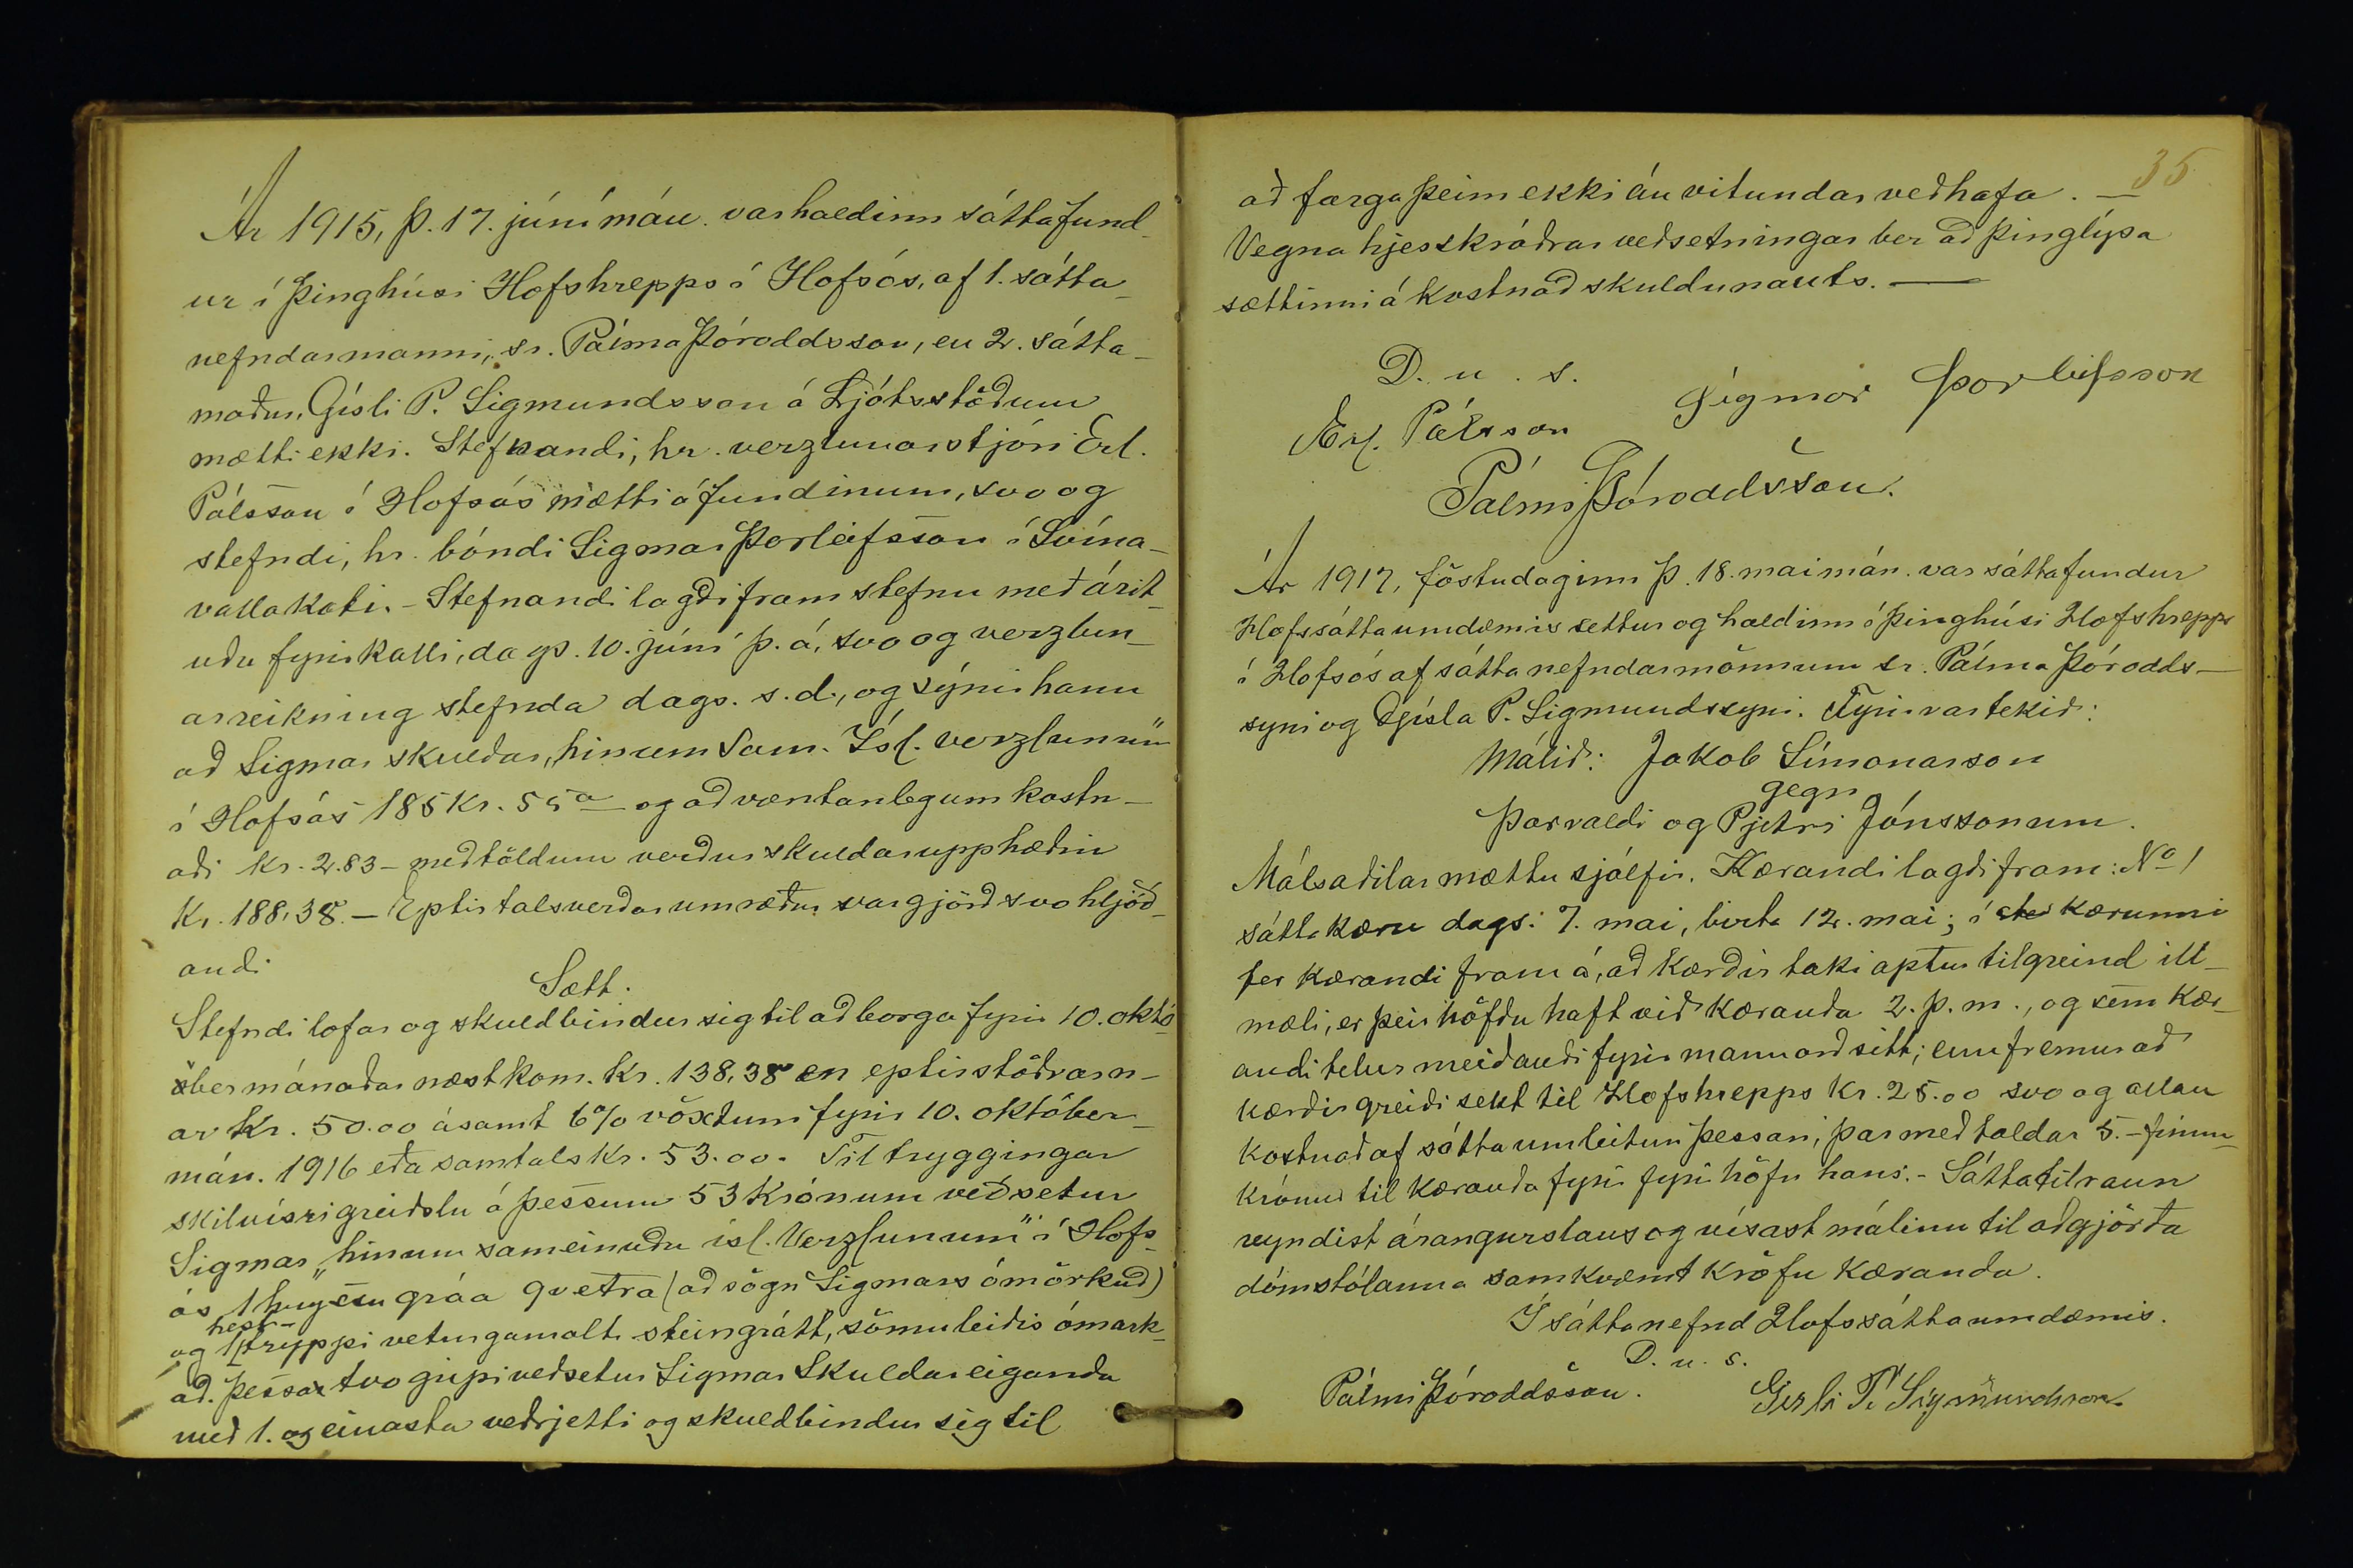 Ár 1915, þ. 17. júnímán. var haldinn sáttafund-
ur í þinghúsi Hofshrepps í Hofsós, af 1. sátta-
nefndarmanni, sr. Pálma Þóroddsson, en 2. sátta-
maður, Gísli P. Sigmundsson á Ljótsstöðum
mætti ekki. Stefnandi, hr. verzlunarstjóri Erl.
Pálsson í Hofsós mætti á fundinum, svo og
stefndi, hr. bóndi Sigmar Þorleifsson í Svína-
vallakoti. - Stefnandi lagði fram stefnu með árit-
uðu fyrirkalli, dags. 10. júní þ. á, svo og verzlun-
arreikning stefnda dags. s. d., og sýnir hann
að Sigmar skuldar, "hinum Sam. Ísl. verzlunum"
í Hofsós 185 Kr. 55 a og að væntanlegum kostn-
aði kr. 2.83 - meðtöldum verður skuldarupphæðin
Kr. 188,38. - Eptir talsverðar umræður var gjörð svo hljóð-
andi
Sætt.
Stefndi lofar og skuldbindur sig til að borga fyrir 10. októ
ber mánaðar næstkom. Kr. 138,38 en eptirstöðvarn-
ar Kr. 50.00 ásamt 6% vöxtum fyrir 10. október-
mán. 1916 eða samtals Kr. 53.00. Til tryggingar
skilvísri greiðslu á þessum 53 Krónum veðsetur
Sigmar "hinum sameinuðu ísl. Verzlunum" í Hofs-
ós 1 hryssu gráa 9 vetra (að sögn Sigmars ómörkuð)
hest-
og 1 tryppi veturgamalt steingrátt, sömuleiðis ómark-
að. Þessa tvo gripi veðsetur Sigmar Skuldareiganda
með 1. og einasta veðrjetti og skuldbindur sig til
35
að farga þeim ekki án vitundar veðhafa. -
Vegna hjeskráðrar veðsetningar ber að þinglýsa
sættinni á kostnað skuldunauts. -
D. u. s.
Sigmar Þorleifsson
Erl. Pálsson
Pálmi Þóroddsson.
Ár 1917, föstudaginn þ. 18. maimán. var sáttafundur
Hofssáttaumdæmis settur og haldinn í þinghúsi Hofshrepps
í Hofsós af sáttanefndarmönnum sr. Pálma Þórodds-
syni og Gísla P. Sigmundssyni. Fyrir var tekið:
Málið: Jakob Símonarson
gegn
Þorvaldi og Pjetri Jónssonum.
Málsaðilar mættu sjálfir. Kærandi lagði fram: No 1
sáttakæru dags: 7. mai, birta 12. mai; í kærunni
fer kærandi fram á, að kærðir taki aptur tilgreind ill-
mæli, er þeir höfðu haft við kæranda 2. þ. m., og sem kær-
andi telur meiðandi fyrir mannorð sitt; enn fremur að
kærðir greiði sekt til Hofshrepps Kr. 25.00 svo og allan
kostnað af sáttaumleitun þessari, þar með taldar 5. - fimm
krónur til kæranda fyrir fyrirhöfn hans. - Sáttatilraun
reyndist árangurslaus og vísast málinu til aðgjörða
dómstólanna samkvæmt kröfu kæranda.
Í sáttanefnd Hofssáttaumdæmis.
D. u. s.
Pálmi Þóroddsson. Gísli P. Sigmundsson